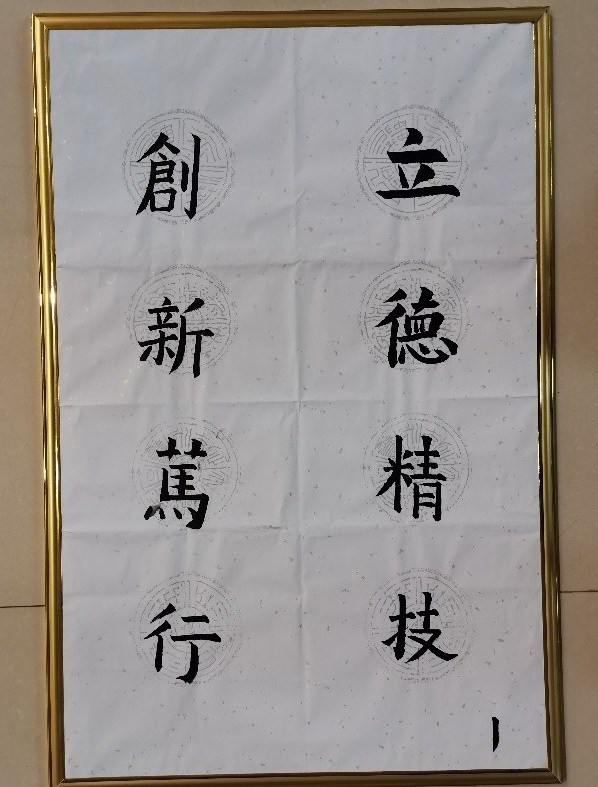 立德精技
創新篤行